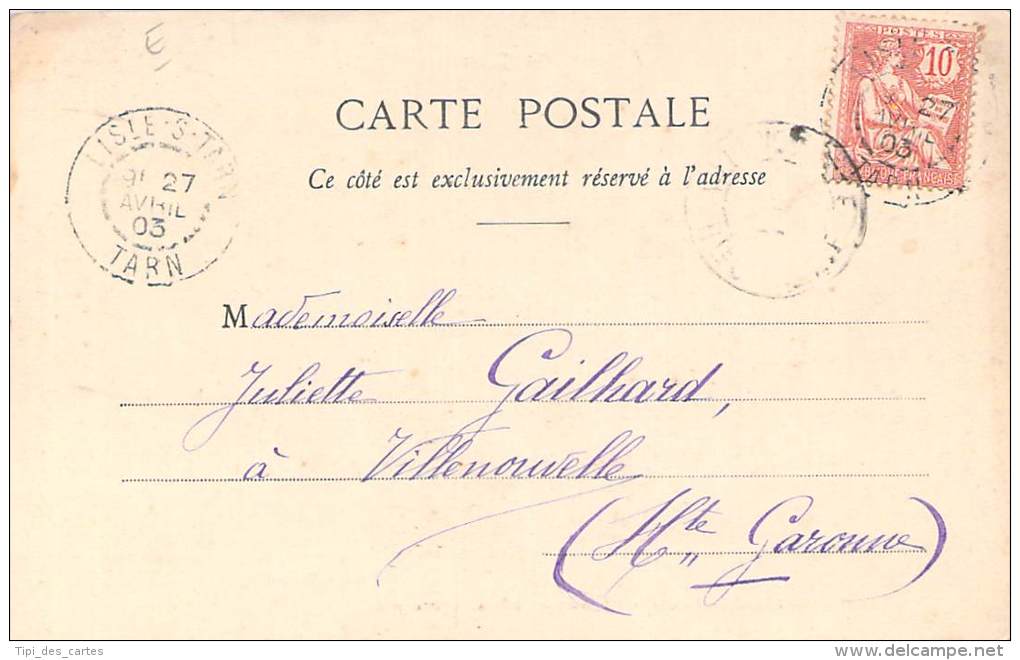 E
POSTES
10
CARTE POSTALE
Ce côté est exclusivement réservé à l'adresse
LISLE-S-TARN
27
AVRIL
03
TARN
27
AVRIL
03
Mademoiselle
Juliette Gailhard,
à Villenouvelle
(Hte Garonne)
Tipi_des_cartes
www.delcampe.net